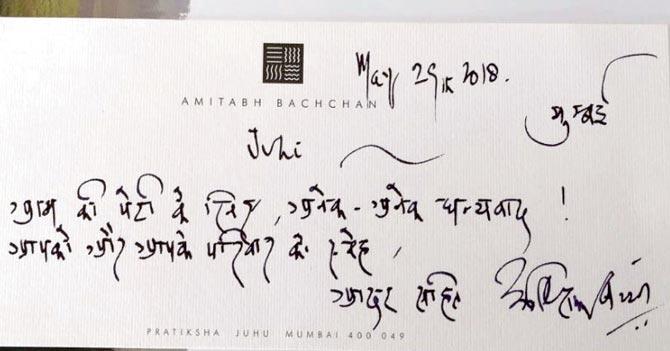 May 29th 2018.
AMITABH BACHCHAN
मुम्बई
Juhi
आम की पेटी के लिए, अनेक-अनेक धन्यवाद !
आपको और आपके परिवार को स्नेह,
आदर सहित
PRATIKSHA JUHU MUMBAI 400 049